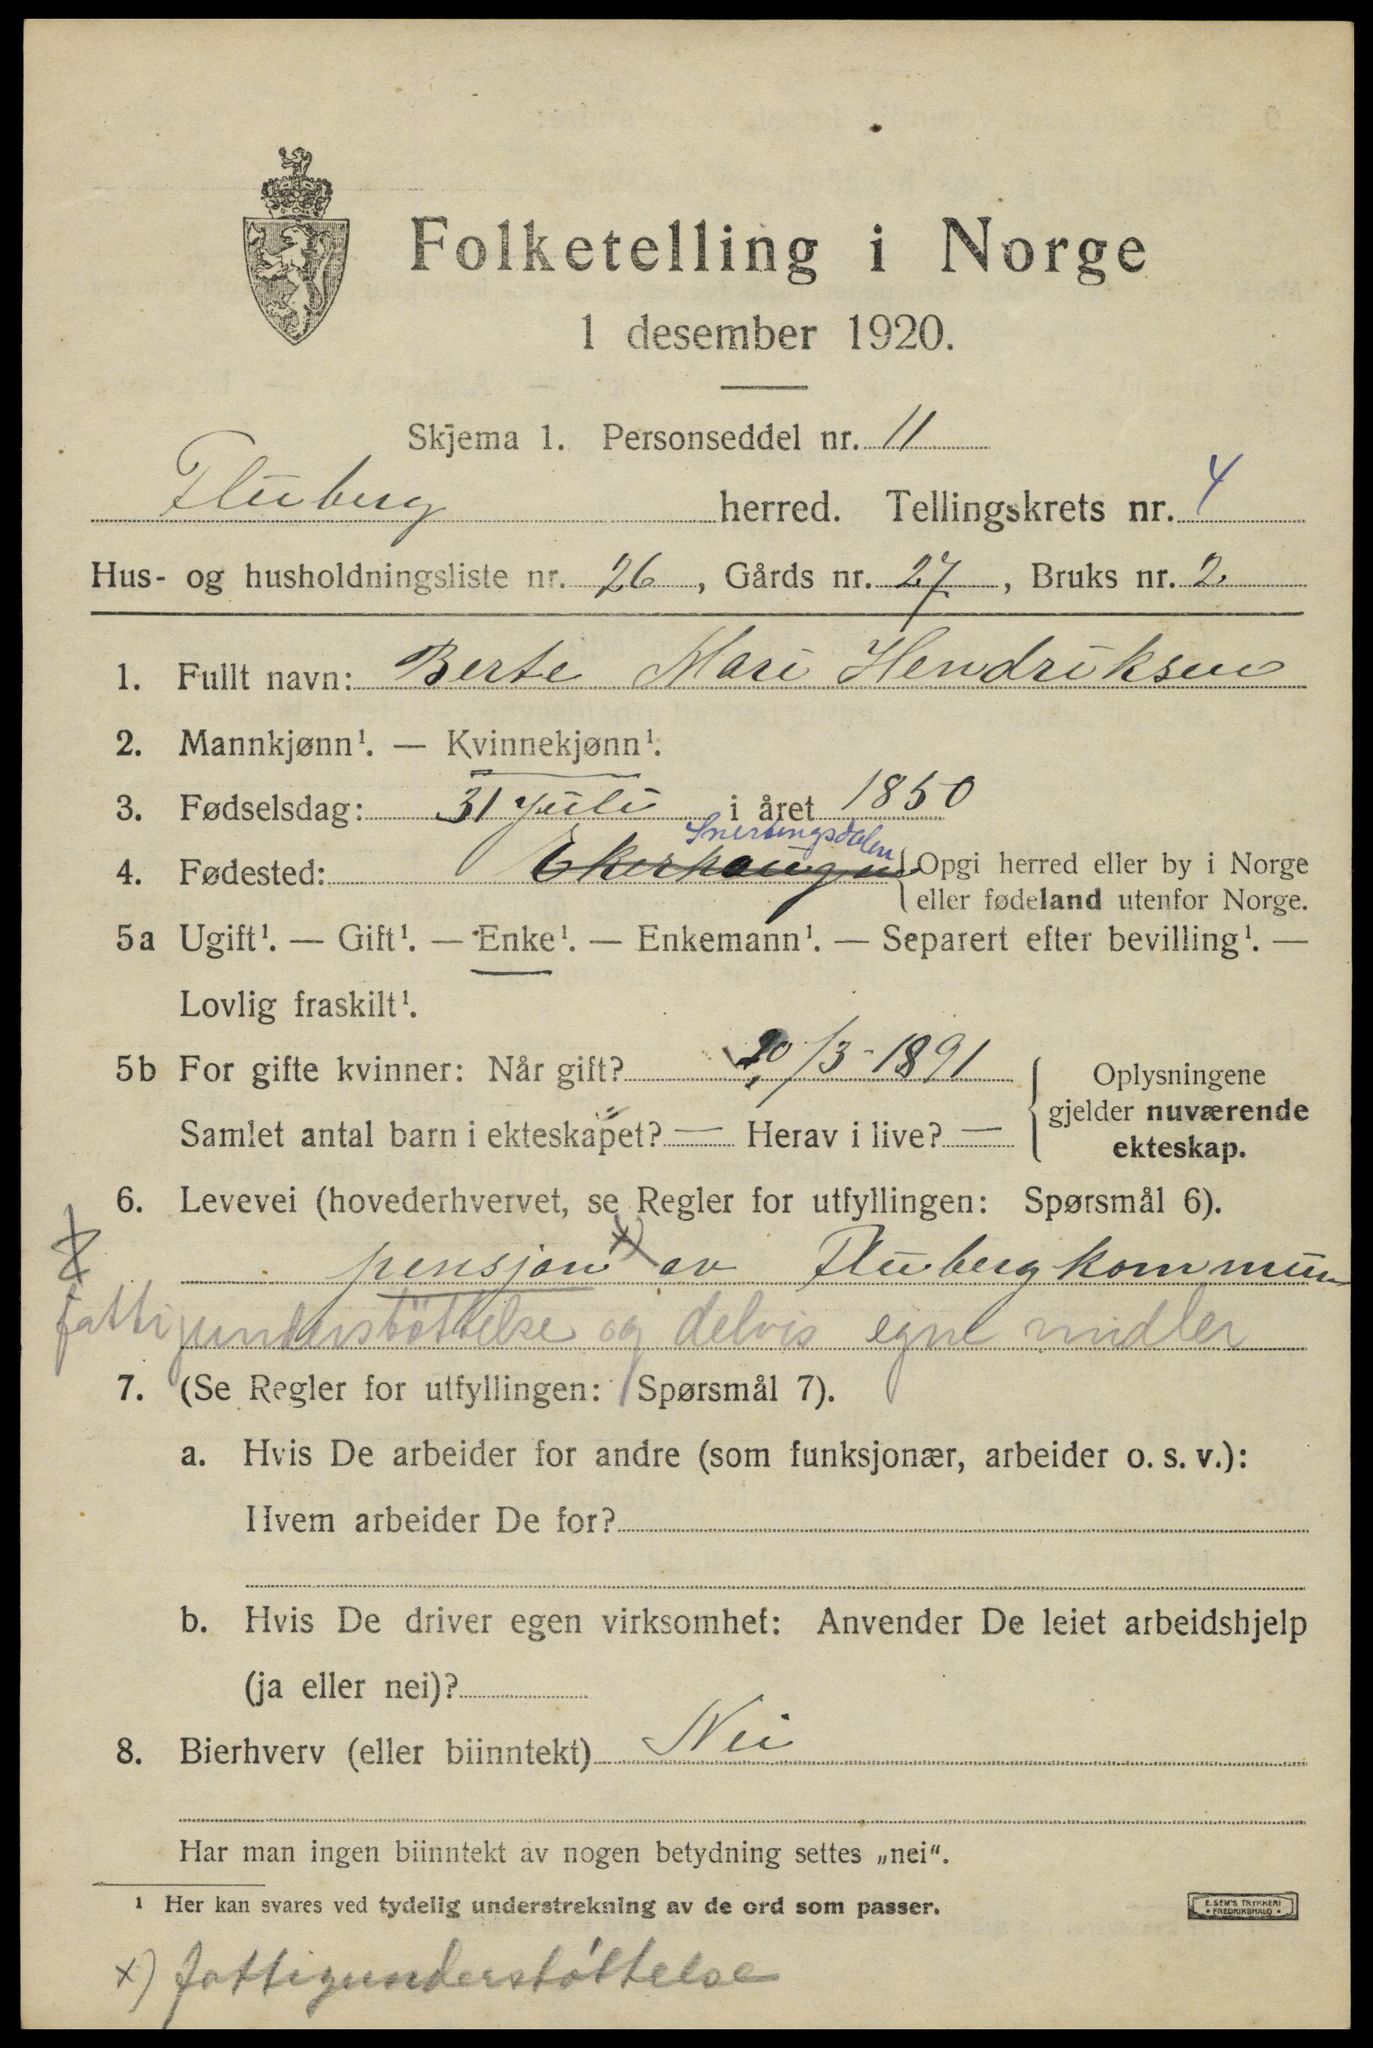 Folketelling i Norge
1 desember 1920.
Skjema 1. Personseddel nr. 11
Fluberg herred. Tellingskrets nr. 4
Hus- og husholdningsliste nr. 26, Gårds nr. 27, Bruks nr. 2
1. Fullt navn: Berte Mari Hendriksen
2. Mannkjønn¹. — Kvinnekjønn¹.
3. Fødselsdag: 31 juli i året 1850
Snertingsdalen
4. Fødested: Ekerhaugen { Opgi herred eller by i Norge
eller fødeland utenfor Norge.
5a Ugift¹. — Gift¹. — Enke¹. — Enkemann¹. — Separert efter bevilling¹. —
Lovlig fraskilt¹.
5b For gifte kvinner: Når gift? 20/3-1891
Samlet antal barn i ekteskapet? — Herav i live? —
Oplysningene
gjelder nuværende
ekteskap.
6. Levevei (hovederhvervet, se Regler for utfyllingen: Spørsmål 6).
pensjon x) av Fluberg kommun
fattigunderstöttelse og delvis egne midler
7. (Se Regler for utfyllingen: Spørsmål 7).
a. Hvis De arbeider for andre (som funksjonær, arbeider o. s. v.):
Hvem arbeider De for?
b. Hvis De driver egen virksomhet: Anvender De leiet arbeidshjelp
(ja eller nei)?
8. Bierhverv (eller biinntekt) Nei
Har man ingen biinntekt av nogen betydning settes „nei“.
¹ Her kan svares ved tydelig understrekning av de ord som passer.
E. SEM'S TRYKKERI
• FREDRIKSHALD •
x) fattigunderstöttelse